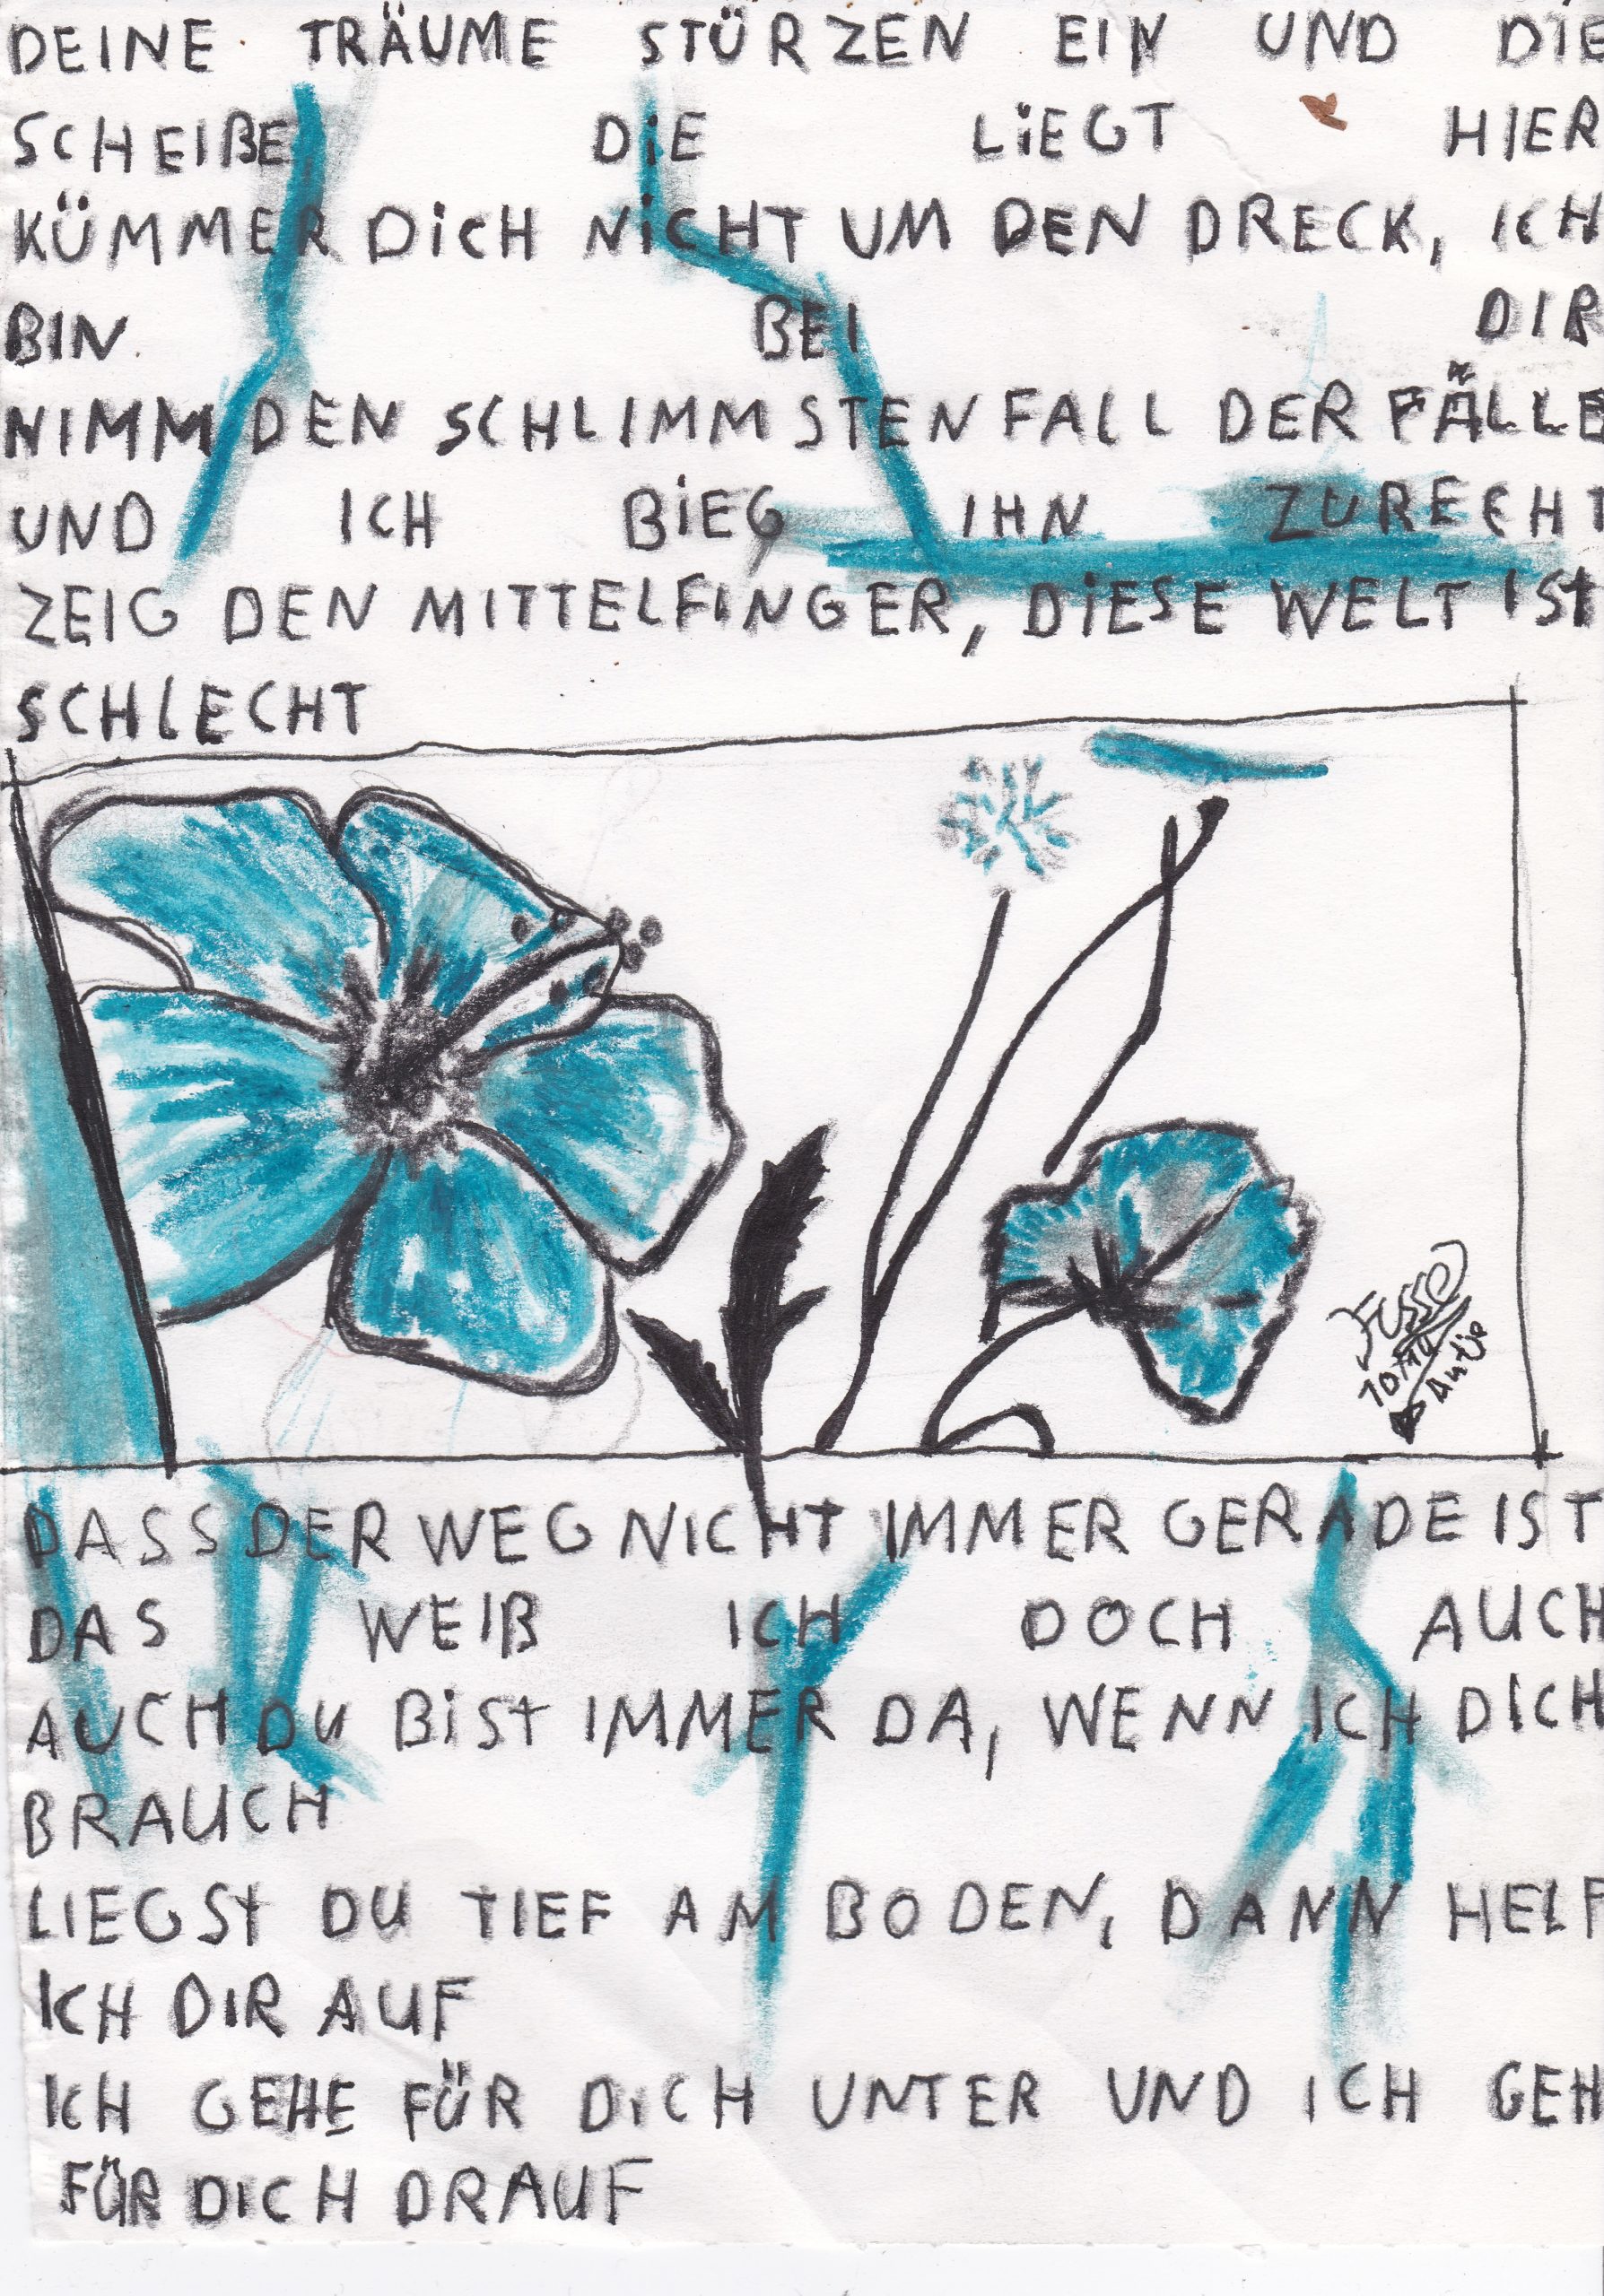 DEINE TRÄUME STÜRZEN EIN UND DIE
SCHEIßE DIE LIEGT HIER
KÜMMER DICH NICHT UM DEN DRECK, ICH
BIN BEI DIR
NIMM DEN SCHLIMMSTEN FALL DER FÄLLE
UND ICH BIEG IHN ZURECHT
ZEIG DEN MITTELFINGER, DIESE WELT IST
SCHLECHT
10/10
Antje
DASS DER WEG NICHT IMMER GERADE IST
DAS WEIß ICH DOCH AUCH
AUCH DU BIST IMMER DA, WENN ICH DICH
BRAUCH
LIEGST DU TIEF AM BODEN, DANN HELF
ICH DIR AUF
ICH GEHE FÜR DICH UNTER UND ICH GEH
FÜR DICH DRAUF